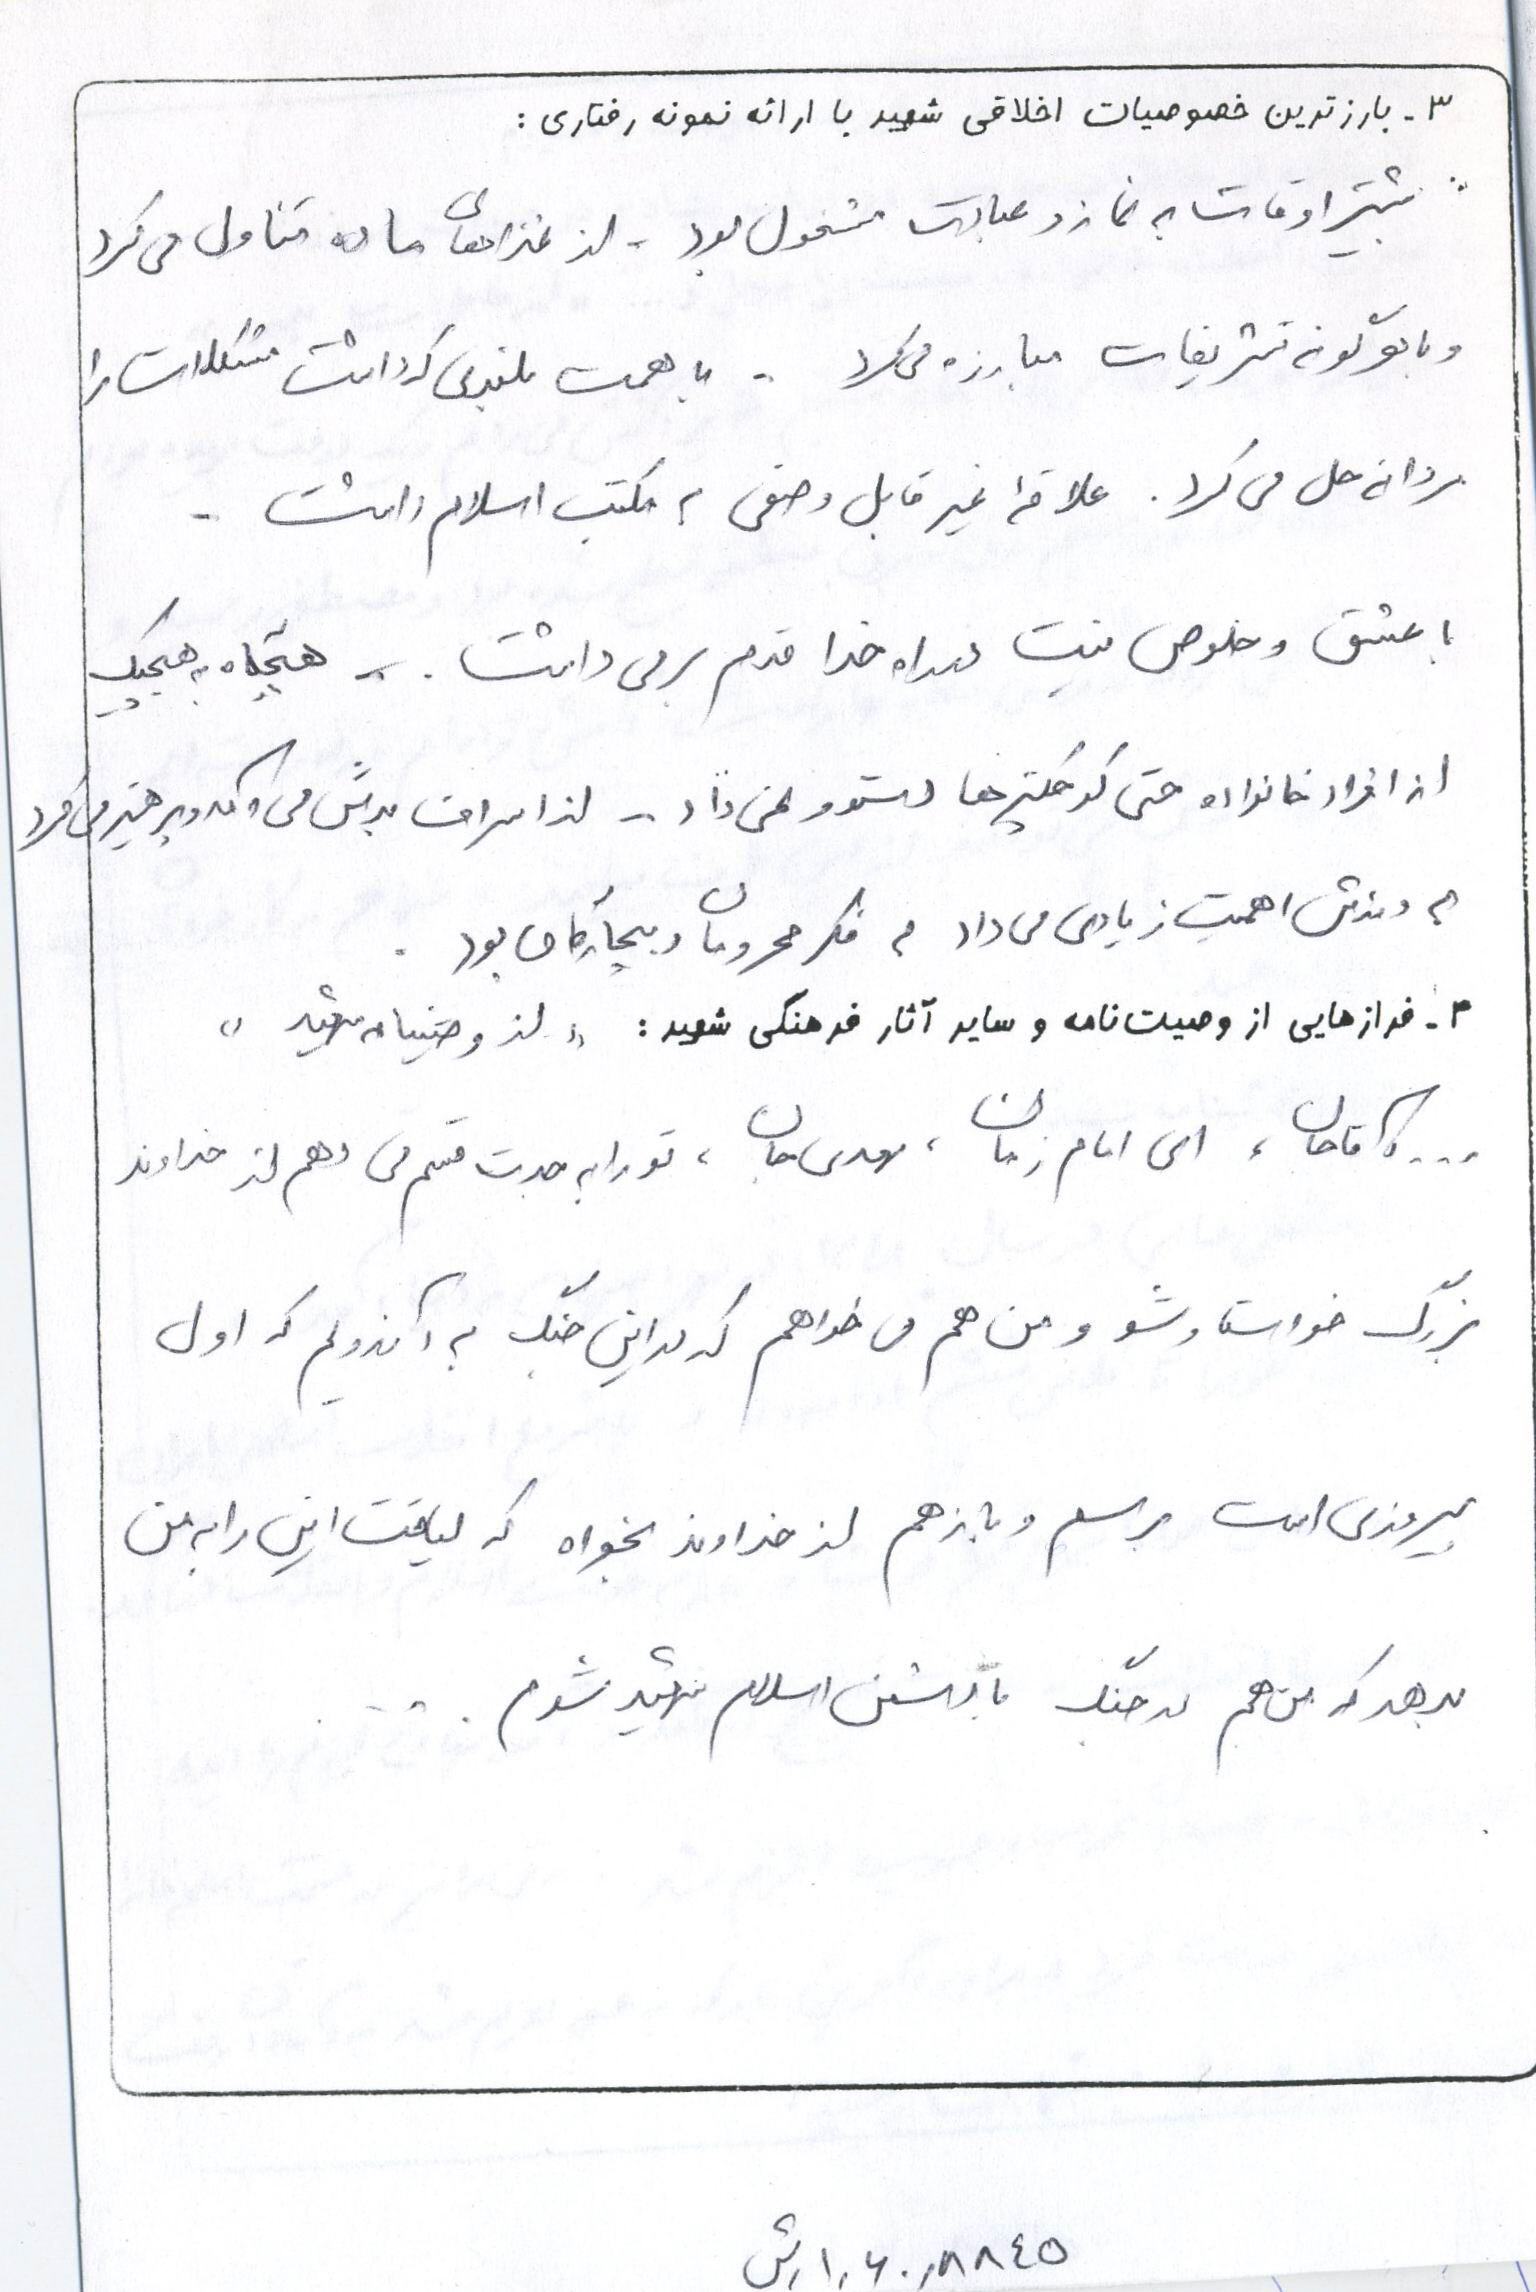 ۳- بارزترین خصوصیات اخلاقی شهید با ارائه نمونه رفتاری :
بیشتر اوقات به نماز و عبادت مشغول بود - از غذاهای ساده تناول می کرد
و با هر گونه تشریفات مبارزه می کرد - با همت بلندی که داشت مشکلات را
مردانه حل می کرد . علاقهٔ غیر قابل وصفی به مکتب اسلام داشت -
با عشق و خلوص نیت در راه خدا قدم بر می داشت . - هیچگاه به هیچیک
از افراد خانواده حتی کوچکترها دستور نمی داد - از اسراف بدش می آمد و پرهیز می کرد
به ورزش اهمیت زیادی می داد به فکر محرومان و بیچارگان بود .
۴- فرازهایی از وصیت‌نامه و سایر آثار فرهنگی شهید : « از وصیتنامه شهید »
... آقاجان ، ای امام زمان ، مهدی جان ، تو را به جدت قسم می دهم از خداوند
بزرگ خواستار شو و من هم می خواهم که در این جنگ به آرزویم که اول
پیروزی است برسم و باز هم از خداوند بخواه که لیاقت این را به من
بدهد که من هم در جنگ با دشمن اسلام شهید شوم . ...